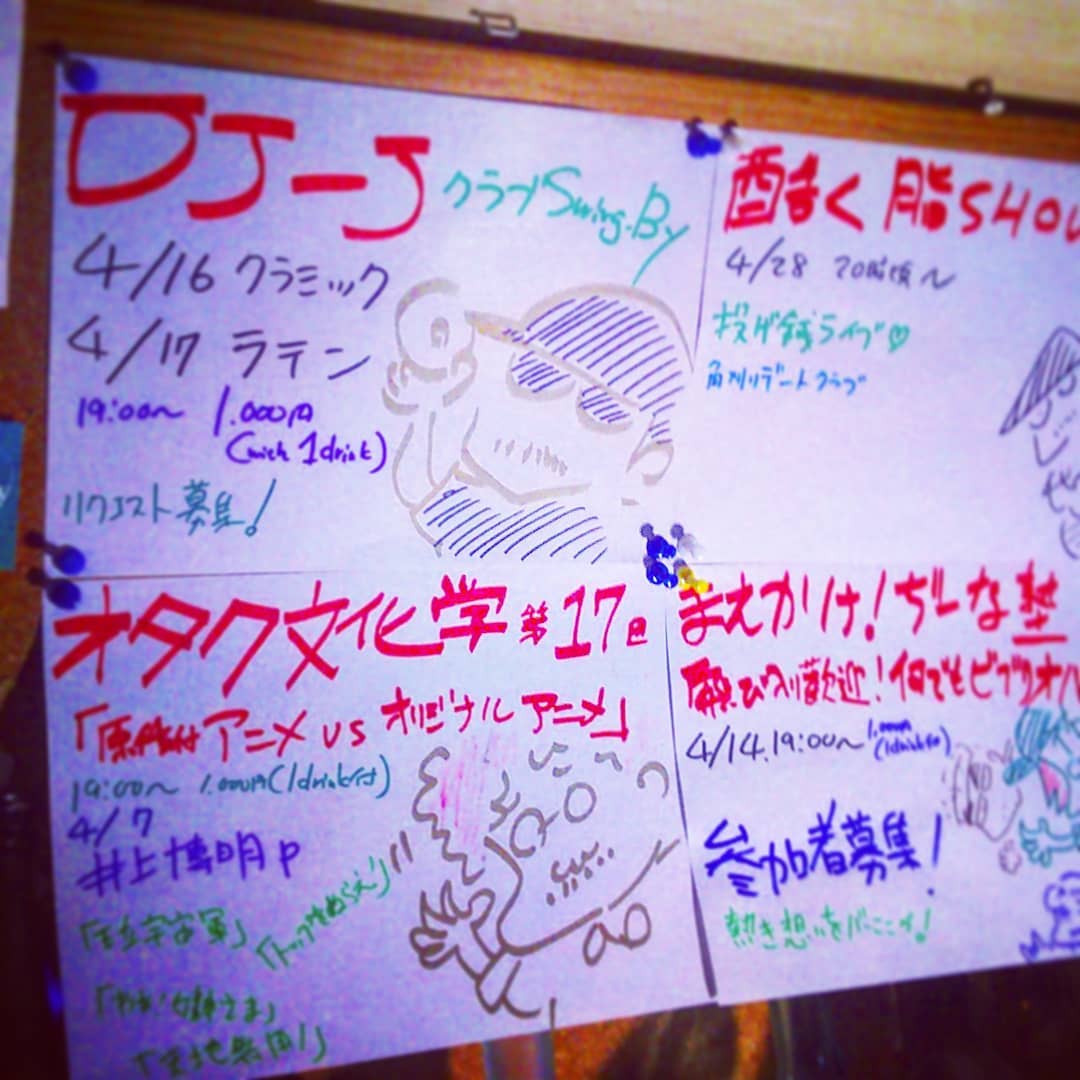 DJ-J
クラブSwing-By
4/16 クラミック
4/17 ラテン
19:00〜 1.000円
(with 1drink)
リクエスト募集!
酔まく 脂SHOW
4/28 20時頃〜
投げ銭ライブ♡
デートクラブ
オタク文化学 第17回
「原作付アニメ VS オリジナルアニメ」
19:00〜 1.000円(1drink付)
4/7
井上博明P
「王立宇宙軍」
「トップをねらえ」
「ああ!女神さま」
「天地無用!」
まえかけ!ぢーな塾
飛び入り歓迎!何でもビブリオバ
4/14.19:00〜 1.000円
(1drink付)
参加者募集!
熱き想いをバ